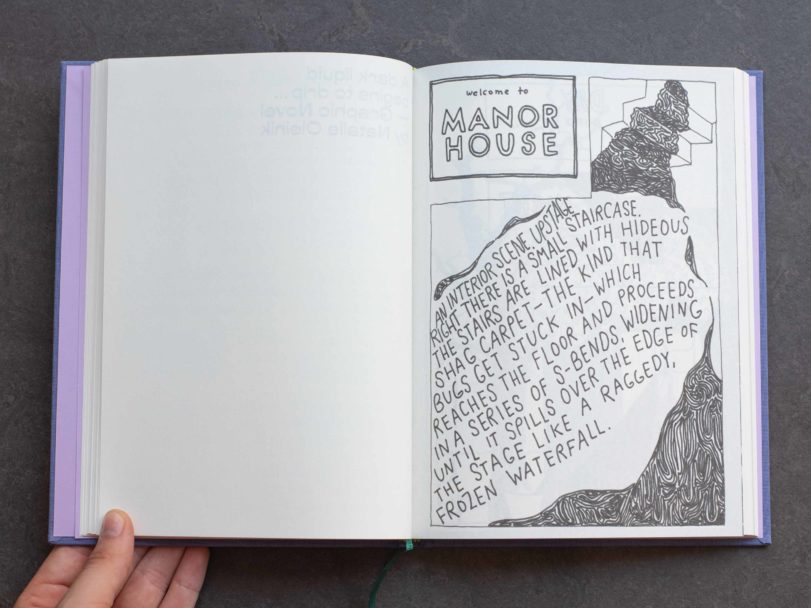 A dark liquid
begins to drip...
– Graphic Novel
by Natalie Oleinik
welcome to
MANOR
HOUSE
AN INTERIOR SCENE UPSTAGE
RIGHT THERE IS A SMALL STAIRCASE.
THE STAIRS ARE LINED WITH HIDEOUS
SHAG CARPET–THE KIND THAT
BUGS GET STUCK IN–WHICH
REACHES THE FLOOR AND PROCEEDS
IN A SERIES OF S-BENDS, WIDENING
UNTIL IT SPILLS OVER THE EDGE OF
THE STAGE LIKE A RAGGEDY,
FROZEN WATERFALL.